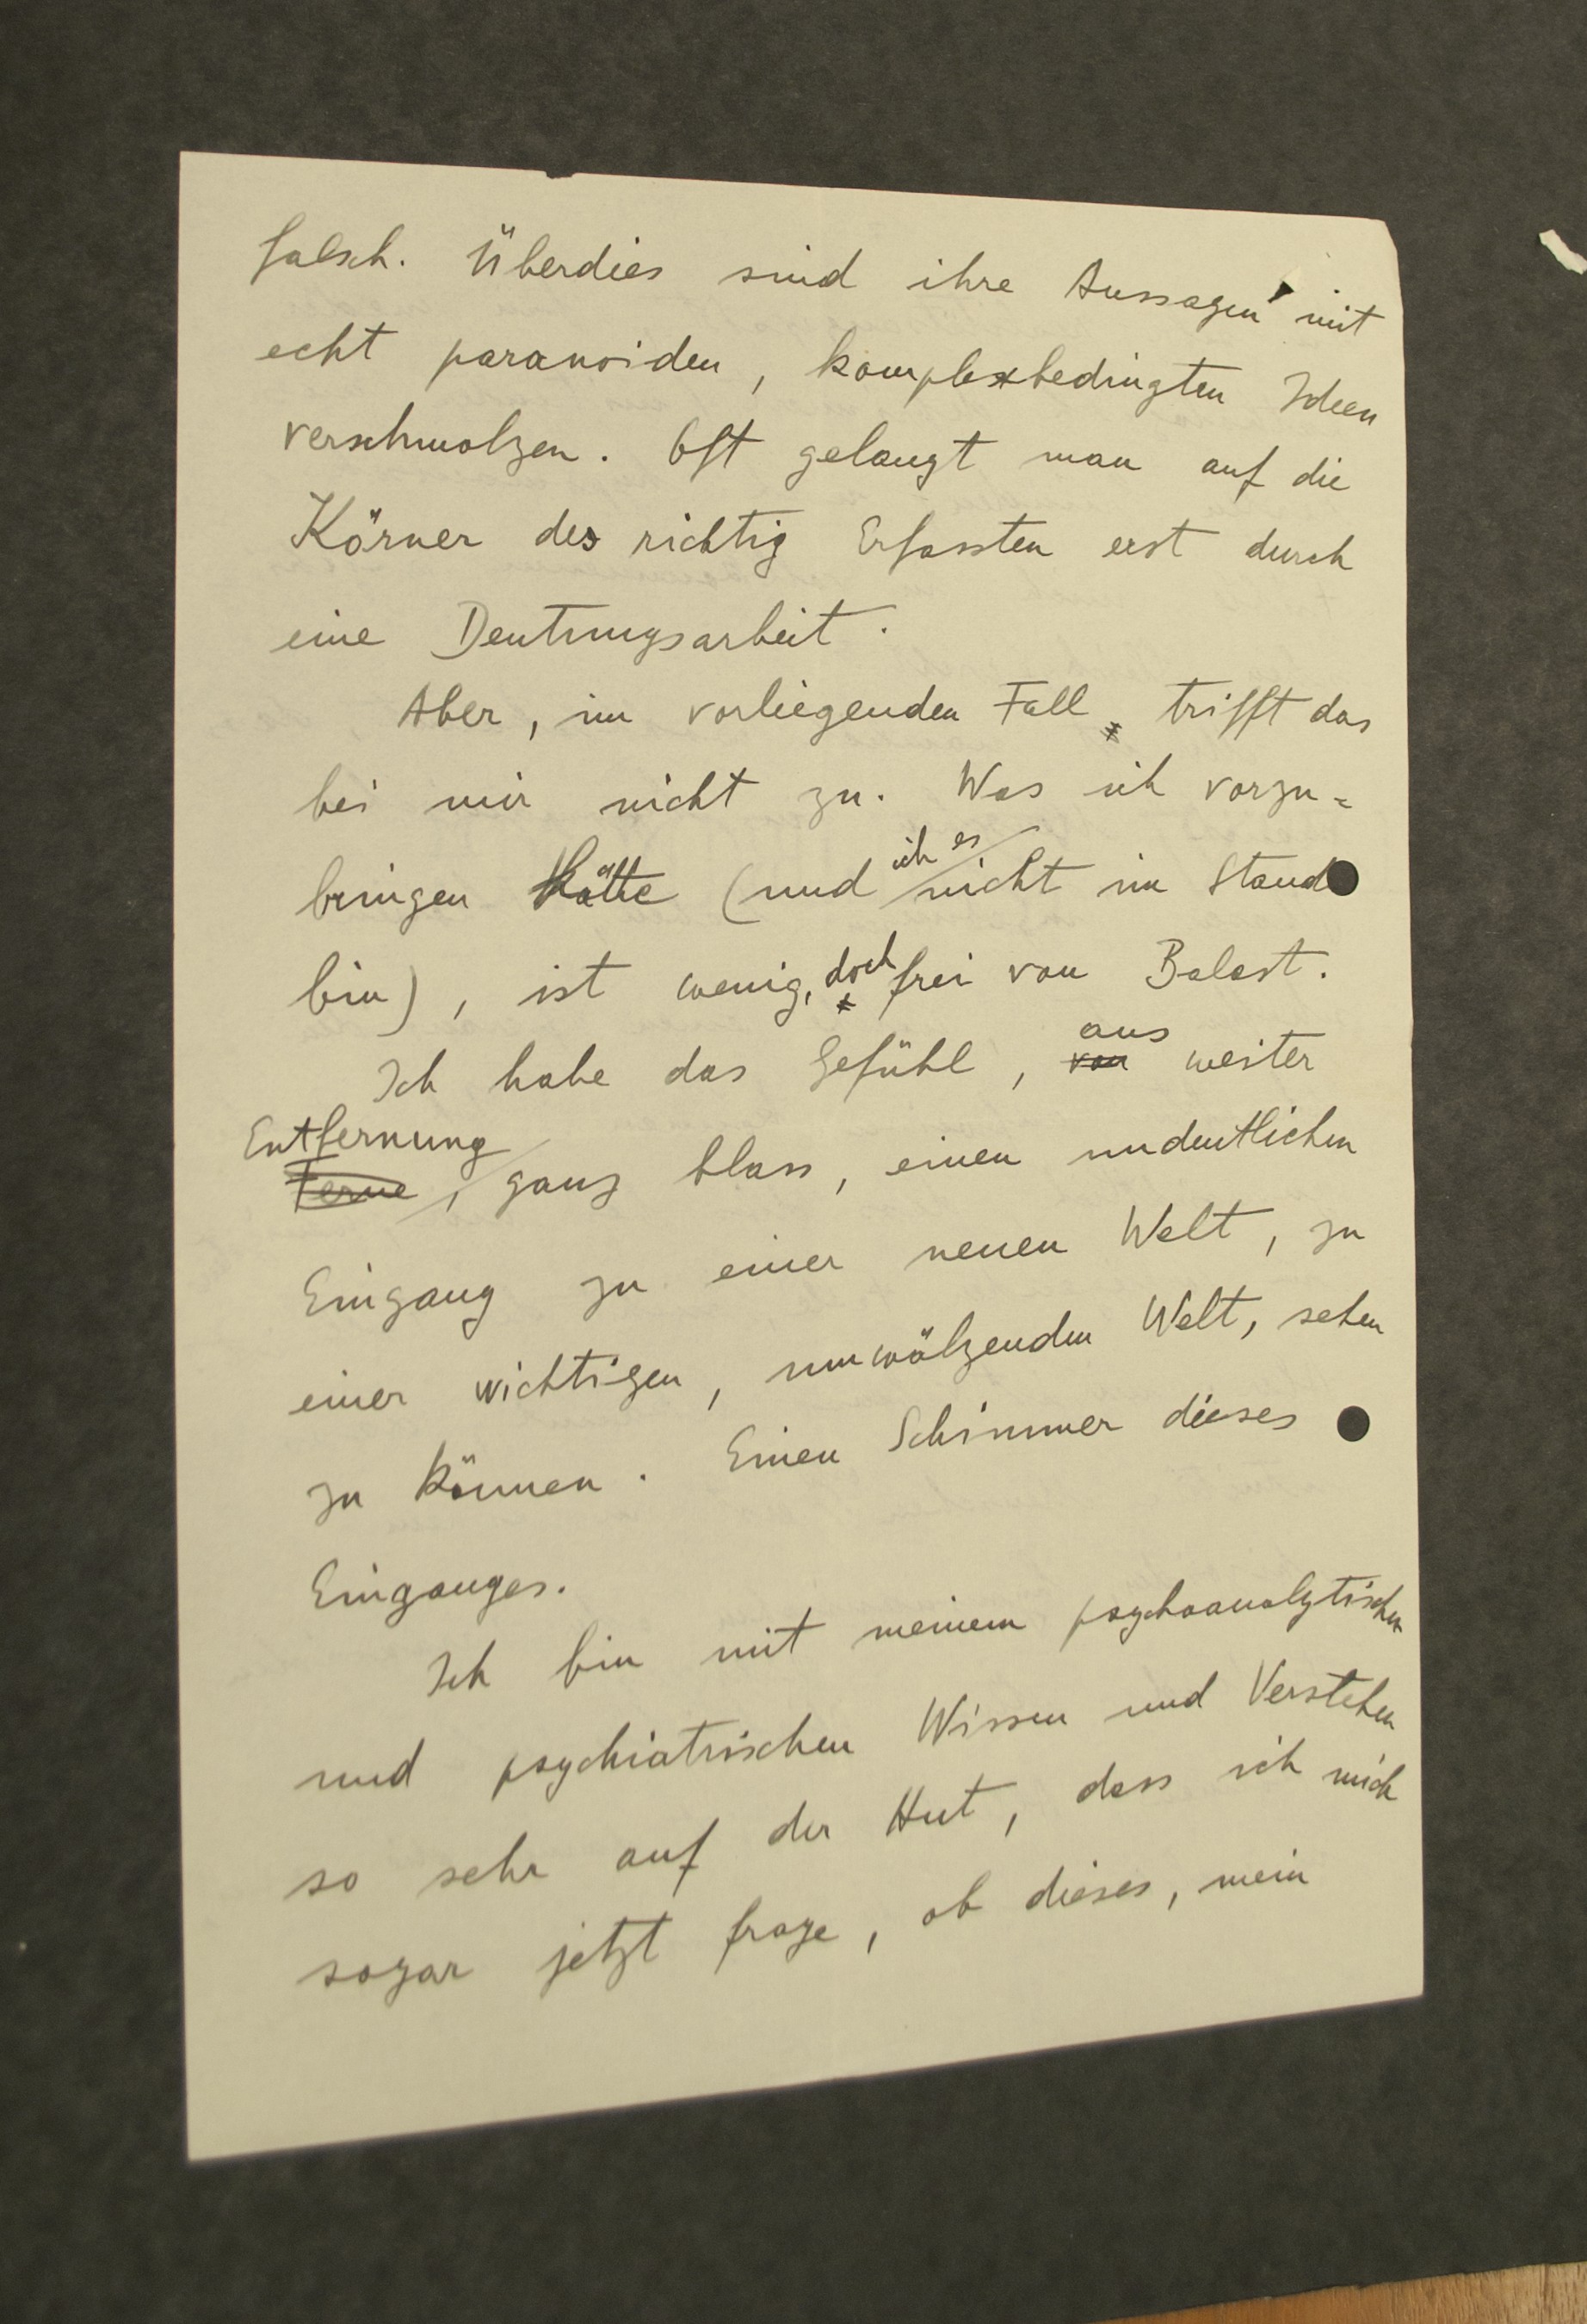 falsch. Überdies sind ihre Aussagen mit
echt paranoiden, komplexbedingten Ideen
verschmolzen. Oft gelangt man auf die
Körner des richtig Erfassten erst durch
eine Deutungsarbeit.
Aber, im vorliegenden Fall, trifft das
bei mir nicht zu. Was ich vorzu=
bringen hätte (und ich es nicht im Stand
bin), ist wenig, doch frei von Balast.
Ich habe das Gefühl, von aus weiter
Ferne Entfernung, ganz blass, einen undeutlichen
Eingang zu einer neuen Welt, zu
einer wichtigen, umwälzenden Welt, sehen
zu können. Einen Schimmer dieses
Einganges.
Ich bin mit meinem psychoanalytischen
und psychiatrischen Wissen und Verstehen
so sehr auf der Hut, dass ich mich
sogar jetzt frage, ob dieses, mein